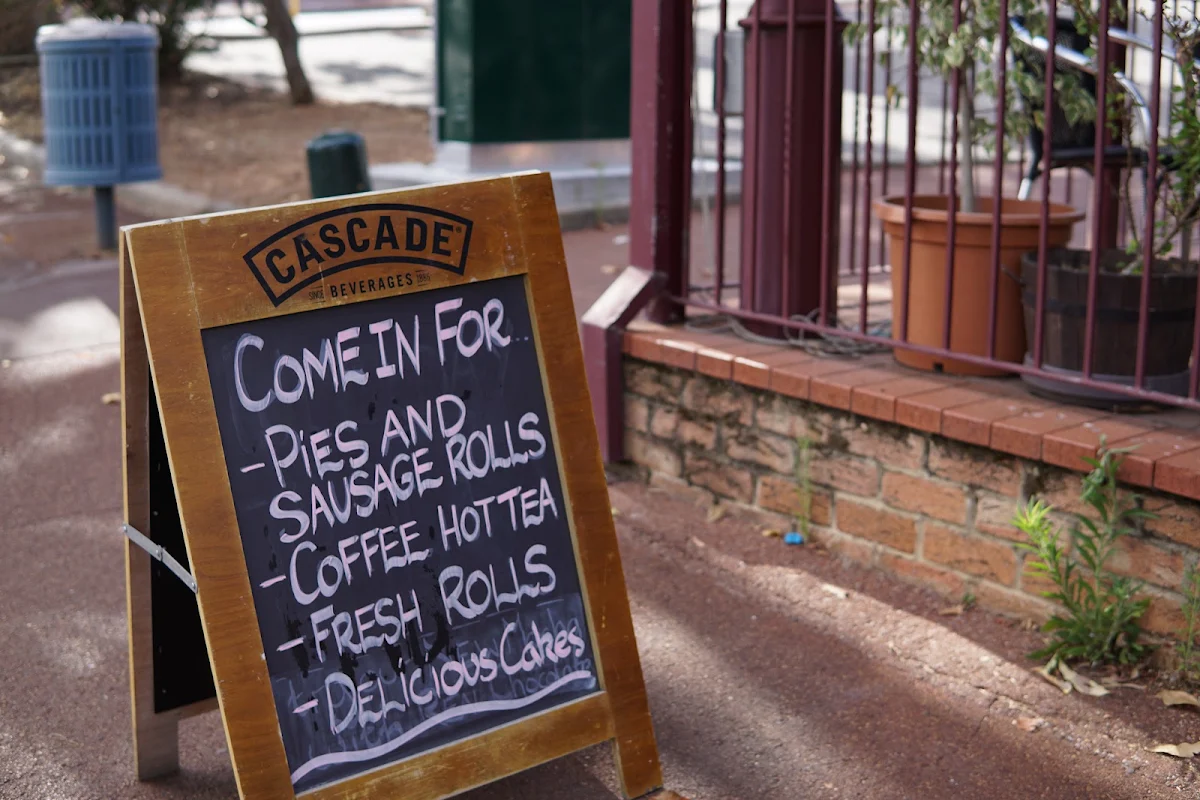 CASCADE®
SINCE BEVERAGES 1883
COME IN FOR...
- PiES AND
SAUSAGE ROLLS
- COFFEE HOT TEA
- FRESH ROLLS
- DELiCiOUS CaKes